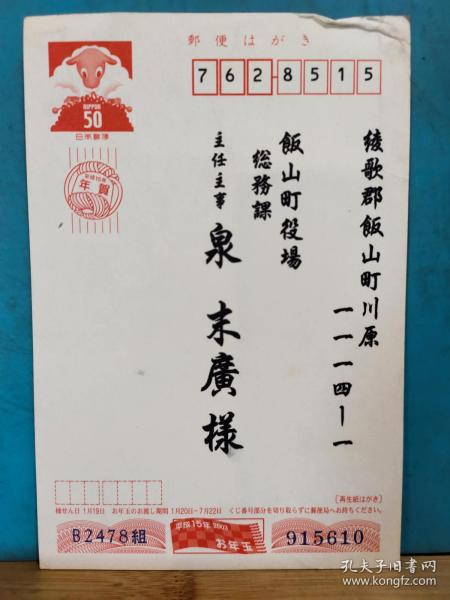 郵便はがき
7628515
NIPPON
50
日本郵便
平成15年
年賀
綾歌郡飯山町川原
一一一四ー一
飯山町役場
総務課
主任主事
泉 末廣様
〔再生紙はがき〕
抽せん日 1月19日 お年玉のお渡し期間 1月20日〜7月22日 くじ番号部分を切り取らずに郵便局へお持ちください。
B2478組
平成15年 2003
お年玉
915610
孔夫子旧书网
www.kongfz.com